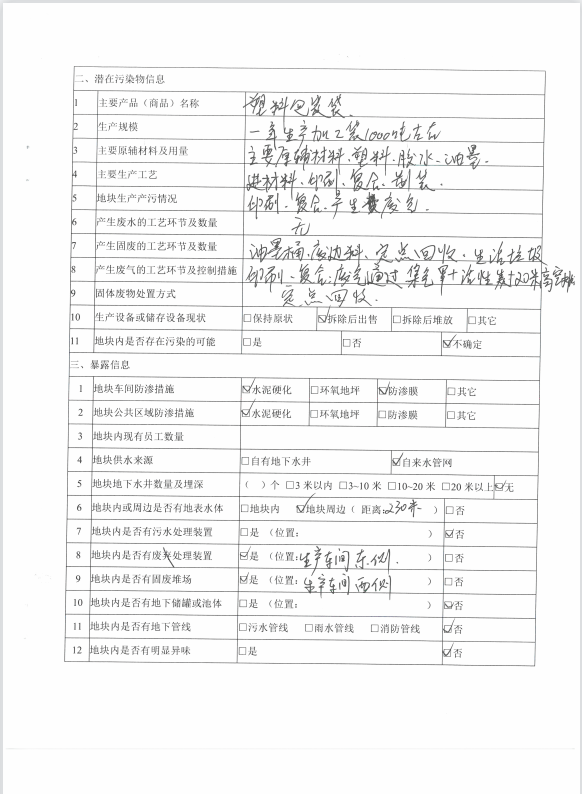 二、潜在污染物信息
1 主要产品（商品）名称 塑料包装袋.
2 生产规模 一年生产加工袋1000吨左右
3 主要原辅材料及用量 主要原辅材料.塑料.胶水.油墨.
4 主要生产工艺 进材料.印刷.复合.制袋.
5 地块生产产污情况 印刷.复合.产生废气.
6 产生废水的工艺环节及数量 无
7 产生固废的工艺环节及数量 油墨桶.废边料.定点回收.生活垃圾
8 产生废气的工艺环节及控制措施 印刷.复合:废气通过集气罩+活性炭+20米高空排
9 固体废物处置方式 定点回收.
10 生产设备或储存设备现状 □保持原状 ☑拆除后出售 □拆除后堆放 □其它
11 地块内是否存在污染的可能 □是 □否 ☑不确定
三、暴露信息
1 地块车间防渗措施 ☑水泥硬化 □环氧地坪 ☑防渗膜 □其它
2 地块公共区域防渗措施 ☑水泥硬化 □环氧地坪 □防渗膜 □其它
3 地块内现有员工数量
4 地块供水来源 □自有地下水井 ☑自来水管网
5 地块地下水井数量及埋深 （ ）个 □3 米以内 □3~10 米 □10~20 米 □20 米以上 ☑无
6 地块内或周边是否有地表水体 □地块内 ☑地块周边（ 距离:230米 ） □否
7 地块内是否有污水处理装置 □是（位置: ） ☑否
8 地块内是否有废气处理装置 ☑是（位置:生产车间东侧. ） □否
9 地块内是否有固废堆场 ☑是（位置:生产车间西侧 ） □否
10 地块内是否有地下储罐或池体 □是（位置: ） ☑否
11 地块内是否有地下管线 □污水管线 □雨水管线 □消防管线 ☑否
12 地块内是否有明显异味 □是 ☑否